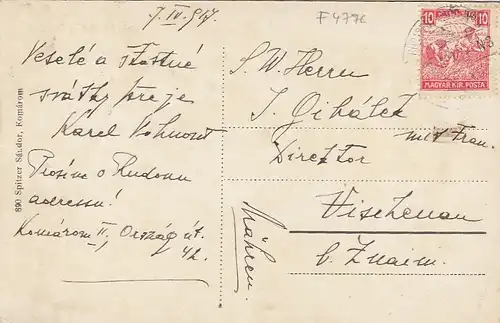 7. IV. 917.
F 477c
Veselé a šťastné
svátky přeje
Karel Kohnout
Prosíme o Rudovu
adressu!
Komárom II, Ország út.
42.
890 Spitzer Sándor, Komárom
S. W. Herrn
J.
mit Frau.
Direktor
Vischenau
b. Znaim.
Mähren.
10 10
MAGYAR KIR. POSTA